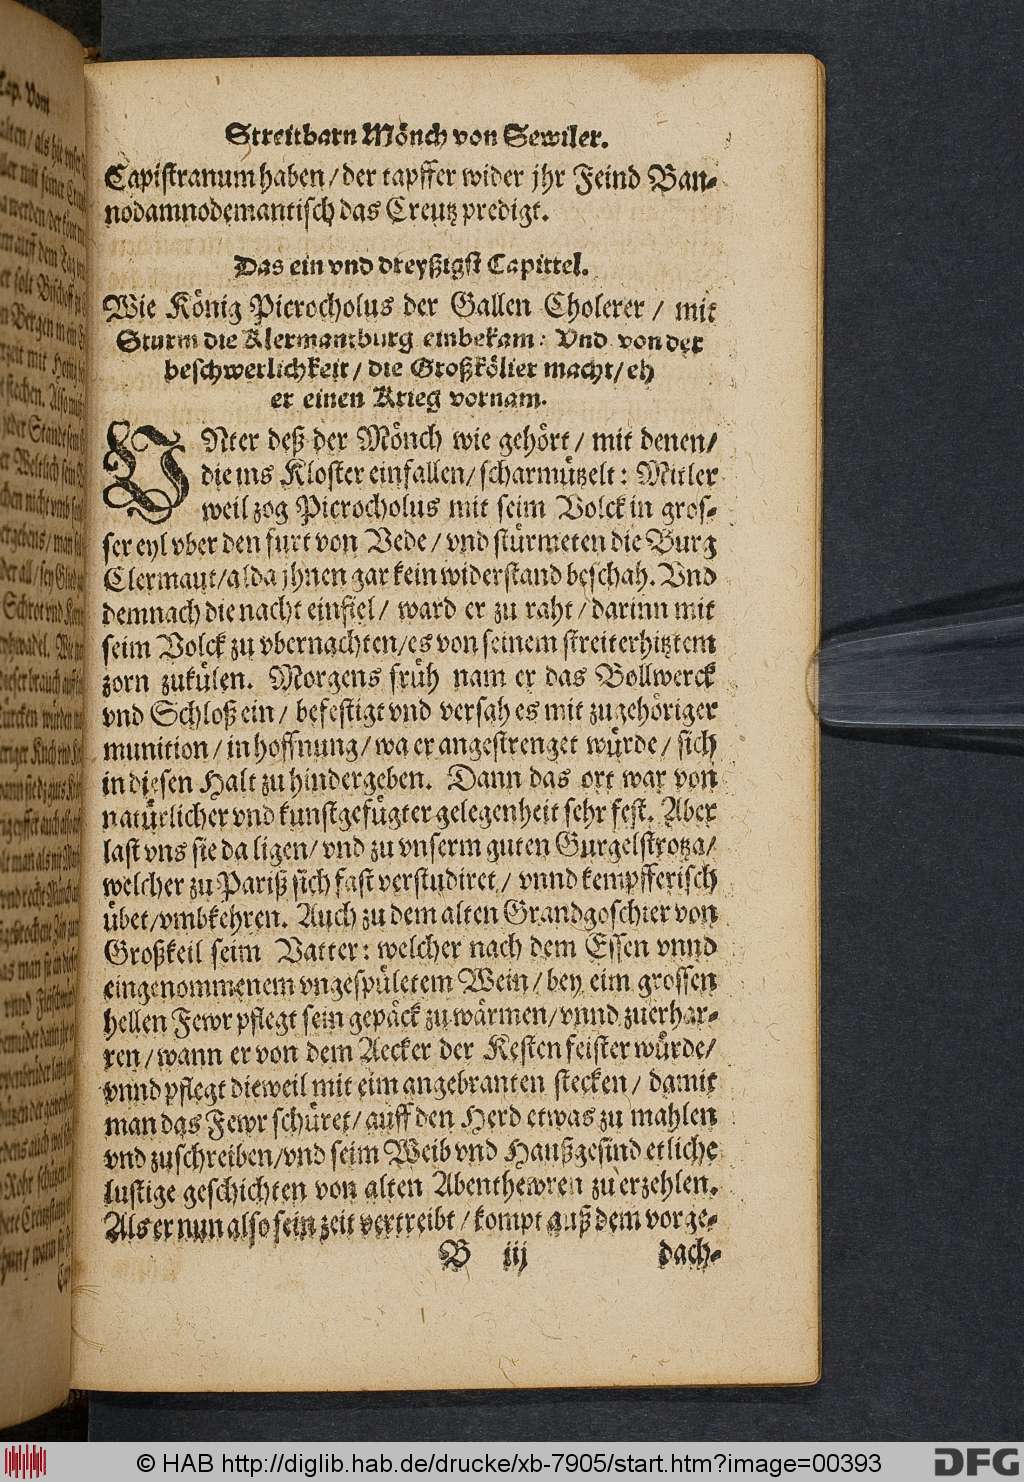 Streitbarn Mönch von Sewiler.
Capistranum haben / der tapffer wider jhr Feind Ban-
nodamnodemantisch das Creutz predigt.
Das ein vnd dreyßigst Capittel.
Wie König Picrocholus der Gallen Cholerer / mit
Sturm die Klermantburg einbekam: Vnd von der
beschwerlichkeit / die Großkölier macht / eh
er einen Krieg vornam.
VNter deß der Mönch wie gehört / mit denen /
die ins Kloster einfallen / scharmützelt: Mitler
weil zog Picrocholus mit seim Volck in gros-
ser eyl vber den furt von Vede / vnd stürmeten die Burg
Clermaut / alda jhnen gar kein widerstand beschah. Vnd
demnach die nacht einfiel / ward er zu raht / darinn mit
seim Volck zu vbernachten / es von seinem streiterhitztem
zorn zukülen. Morgens früh nam er das Bollwerck
vnd Schloß ein / befestigt vnd versah es mit zugehöriger
munition / in hoffnung / wa er angestrenget würde / sich
in diesen Halt zu hindergeben. Dann das ort war von
natürlicher vnd kunstgefügter gelegenheit sehr fest. Aber
last vns sie da ligen / vnd zu vnserm guten Gurgelstrotza /
welcher zu Pariß sich fast verstudiret / vnnd kempfferisch
übet / vmbkehren. Auch zu dem alten Grandgoschier von
Großkeil seim Vatter: welcher nach dem Essen vnnd
eingenommenem vngespületem Wein / bey eim grossen
hellen Fewr pflegt sein gepäck zu wärmen / vnnd zuerhar-
ren / wann er von dem Aecker der Kesten feister würde /
vnnd pflegt dieweil mit eim angebranten stecken / damit
man das Fewr schüret / auff den Herd etwas zu mahlen
vnd zuschreiben / vnd seim Weib vnd Haußgesind etliche
lustige geschichten von alten Abenthewren zu erzehlen.
Als er nun also sein zeit vertreibt / kompt auß dem vorge-
B iij dach-
© HAB http://diglib.hab.de/drucke/xb-7905/start.htm?image=00393
DFG